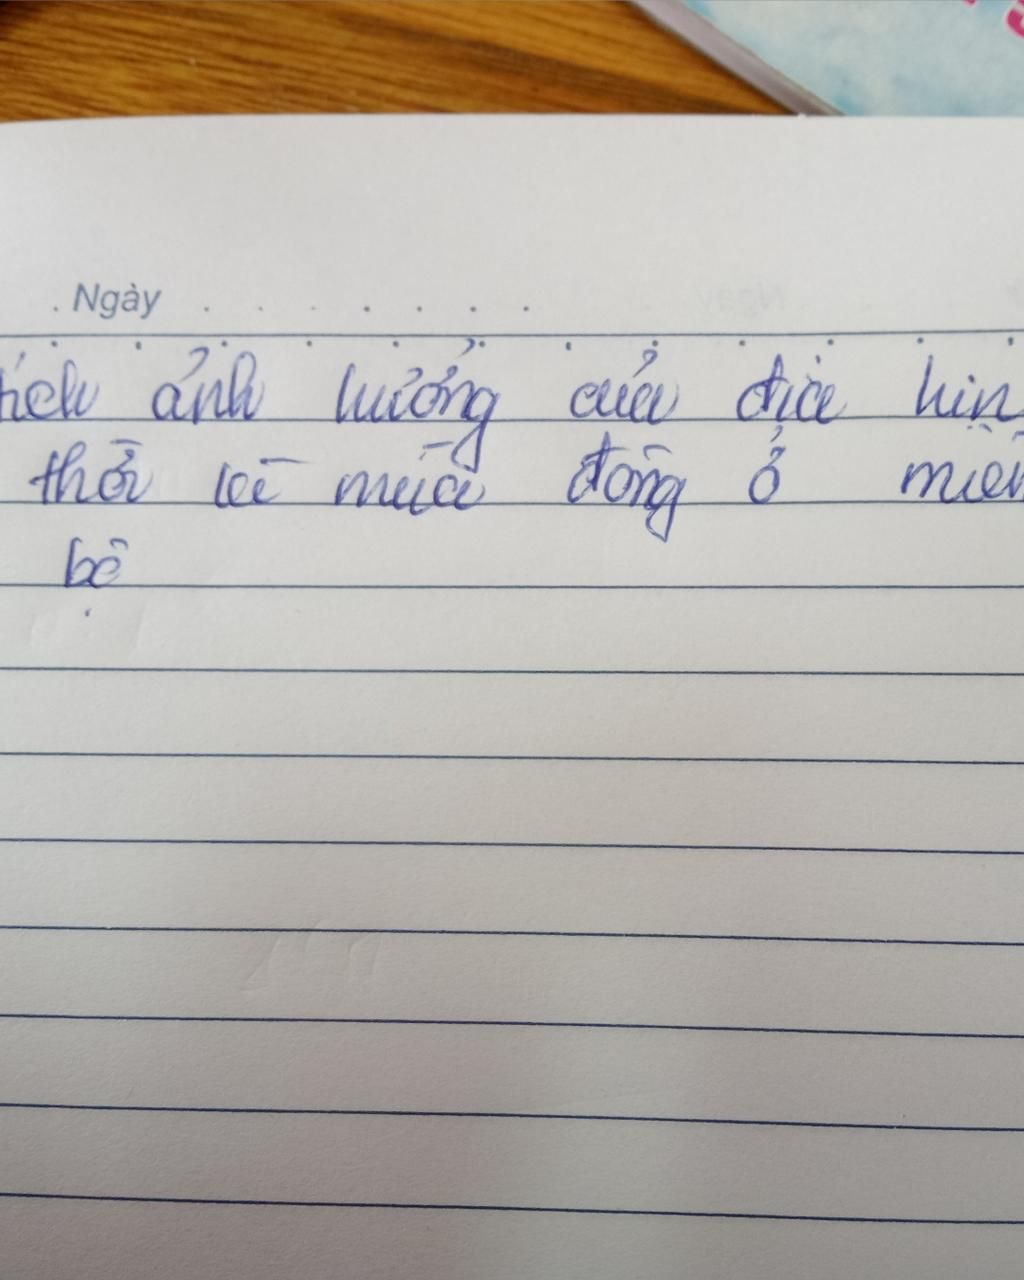 Ngày
ảnh hưởng của địa hìn
thời mùa đông ở miền
bộ